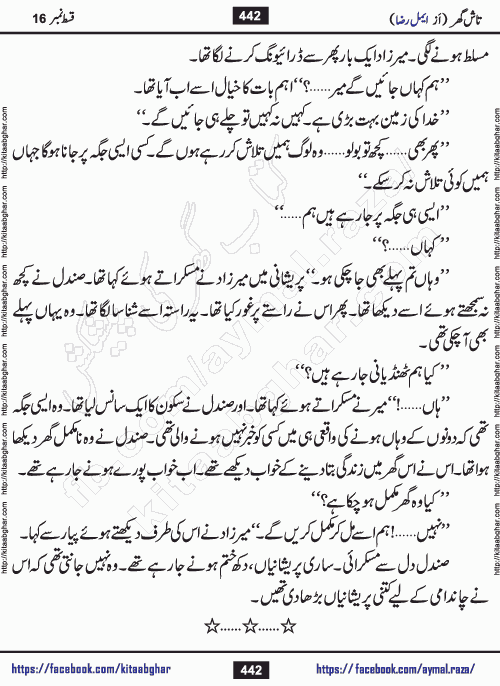 تاش گھر (از ایمل رضا)
442
قسط نمبر 16
مسلط ہونے لگی۔ میرزاد ایک بار پھر سے ڈرائیونگ کرنے لگا تھا۔
’’ہم کہاں جائیں گے میر......؟‘‘ اہم بات کا خیال اسے اب آیا تھا۔
’’خدا کی زمین بہت بڑی ہے۔ کہیں نہ کہیں تو چلے ہی جائیں گے۔‘‘
’’پھر بھی...... کچھ تو بولو...... وہ لوگ ہمیں تلاش کر رہے ہوں گے۔ کسی ایسی جگہ پر جانا ہوگا جہاں
ہمیں کوئی تلاش نہ کر سکے۔‘‘
’’ایسی ہی جگہ پر جا رہے ہیں ہم......‘‘
’’کہاں......؟‘‘
’’وہاں تم پہلے بھی جا چکی ہو۔‘‘ پریشانی میں میرزاد نے مسکراتے ہوئے کہا تھا۔ صندل نے کچھ
نہ سمجھتے ہوئے اسے دیکھا تھا۔ پھر اس نے راستے پر غور کیا تھا۔ یہ راستہ اسے شناسا لگا تھا۔ وہ یہاں پہلے
بھی آ چکی تھی۔
’’کیا ہم ٹھنڈیانی جا رہے ہیں؟‘‘
’’ہاں......!‘‘ میر نے مسکراتے ہوئے کہا تھا۔ اور صندل نے سکون کا ایک سانس لیا تھا۔ وہ ایسی جگہ
تھی کہ دونوں کے وہاں ہونے کی واقعی ہی میں کسی کو خبر نہیں ہونے والی تھی۔ صندل نے وہ نامکمل گھر دیکھا
ہوا تھا۔ اس نے اس گھر میں زندگی بتا دینے کے خواب دیکھے تھے۔ اب خواب پورے ہونے جا رہے تھے۔
’’کیا وہ گھر مکمل ہو چکا ہے؟‘‘
’’نہیں......! ہم اسے مل کر مکمل کریں گے۔‘‘ میرزاد نے اس کی طرف دیکھتے ہوئے پیار سے کہا۔
صندل دل سے مسکرائی۔ ساری پریشانیاں، دکھ ختم ہونے جا رہے تھے۔ وہ نہیں جانتی تھی کہ اس
نے چاندامی کے لیے کتنی پریشانیاں بڑھا دی تھیں۔
☆......☆......☆
https://facebook.com/kitaabghar
442
https://facebook.com/aymal.raza/
http://kitaabghar.com http://kitaabghar.com http://kitaabghar.com http://kitaabghar.com http://kitaabghar.com
http://kitaabghar.com http://kitaabghar.com http://kitaabghar.com http://kitaabghar.com http://kitaabghar.com